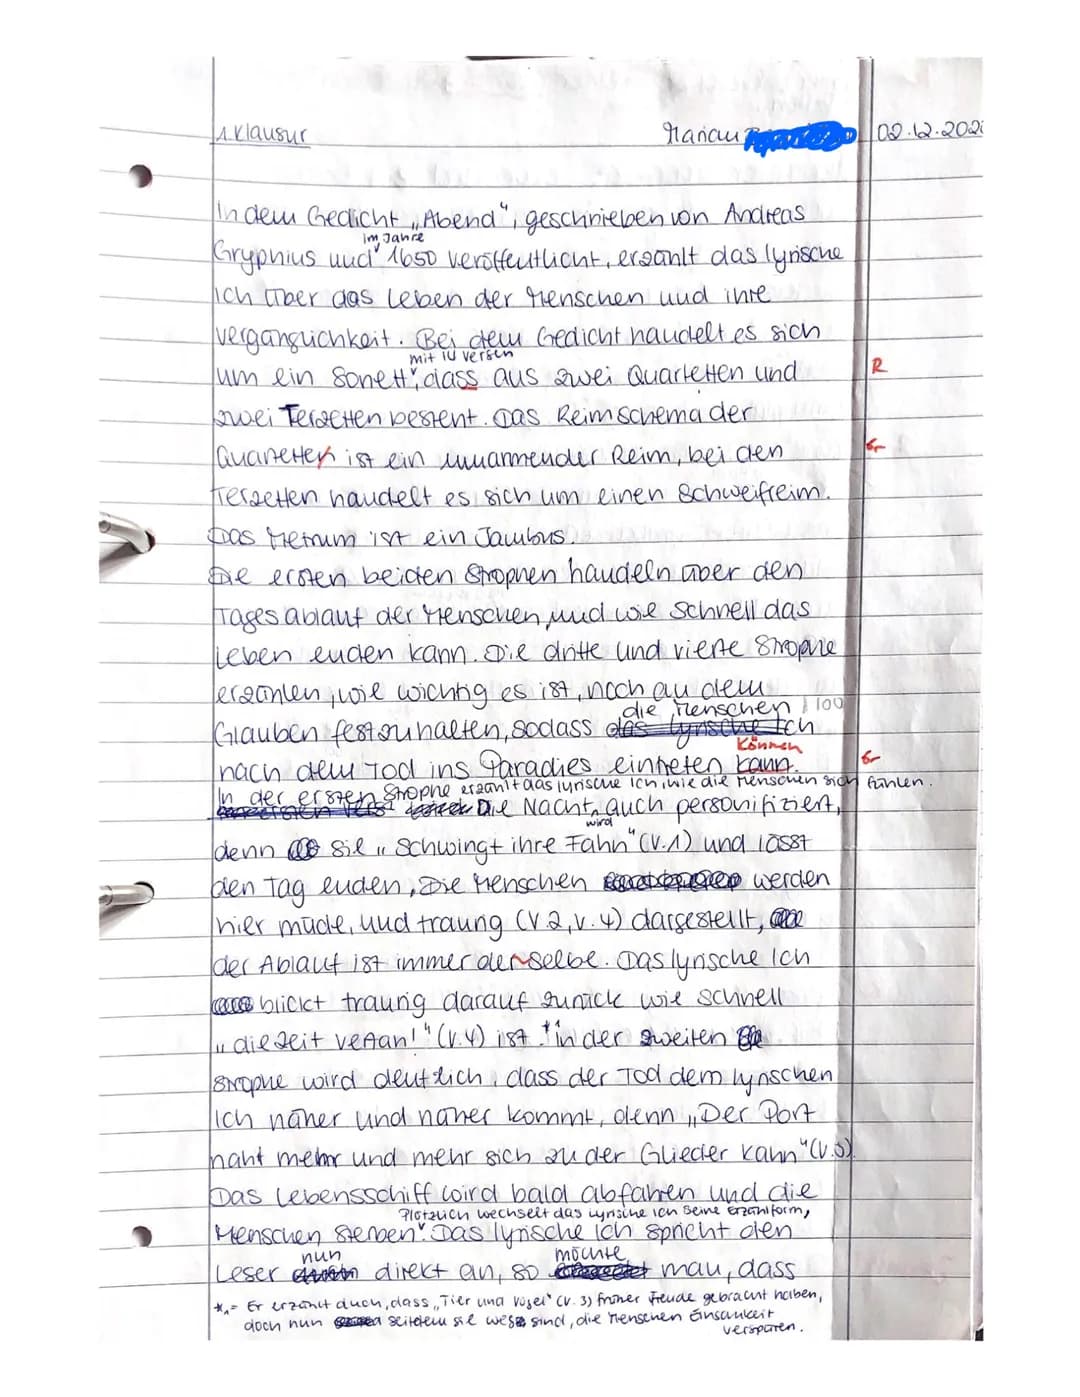 1. Klausur
02.12.202
In dem Gedicht „Abend“, geschrieben von Andreas
im Jahre
Gryphius und 1650 veröffentlicht, erzählt das lyrische
Ich über das Leben der Menschen und ihre
Vergänglichkeit. Bei dem Gedicht handelt es sich
mit 14 Versen
um ein Sonett, dass aus zwei Quartetten und
R
zwei Terzetten besteht. Das Reimschema der
Quartetten ist ein umarmender Reim, bei den
Gr
Terzetten handelt es sich um einen Schweifreim.
Das Metrum ist ein Jambus.
Die ersten beiden Strophen handeln über den
Tagesablauf der Menschen, und wie schnell das
Leben enden kann. Die dritte und vierte Strophe
erzählen, wie wichtig es ist, noch an dem
die Menschen
100
Glauben festzuhalten, sodass das lyrische Ich
können
nach dem Tod ins Paradies eintreten kann.
Gr
In der ersten Strophe erzählt das lyrische Ich, wie die Menschen sich fühlen.
Die Nacht auch personifiziert,
wird
denn sie „schwingt ihre Fahn“ (V.1) und lässt
den Tag enden, Die Menschen werden
hier müde, und traurig (V.2, V.4) dargestellt,
der Ablauf ist immer der selbe. Das lyrische Ich
blickt traurig darauf zurück wie schnell
„die Zeit vertan!“ (V.4) ist.*1 in der zweiten
Strophe wird deutlich, dass der Tod dem lyrischen
Ich näher und näher kommt, denn „Der Port
naht mehr und mehr sich zu der Glieder Kahn“ (V.5).
Das Lebensschiff wird bald abfahren und die
Plötzlich wechselt das lyrische Ich seine Erzählform,
Menschen sterben. Das lyrische Ich spricht den
nun
möchte
Leser direkt an, so man, dass
*1 = Er erzählt auch, dass „Tier und Vögel“ (V. 3) früher Freude gebracht haben,
doch nun seitdem sie weg sind, die Menschen Einsamkeit
verspüren.